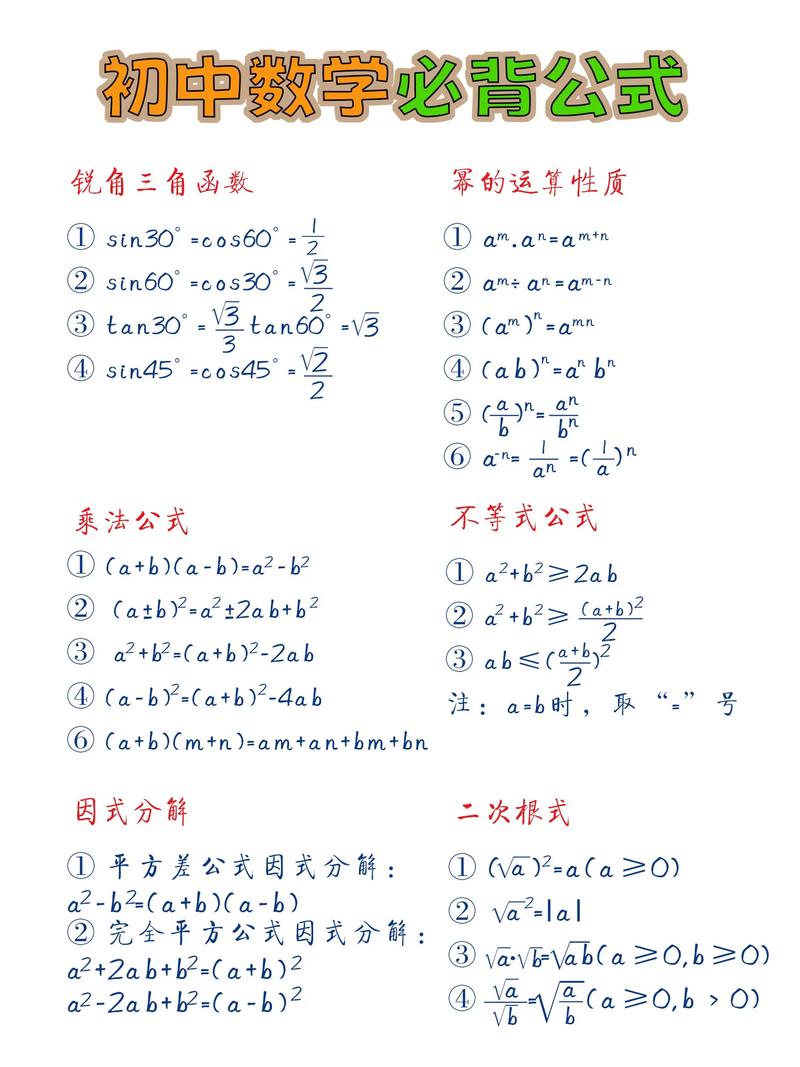 初中数学必背公式
锐角三角函数
① sin30°=cos60°=1/2
② sin60°=cos30°=√3/2
③ tan30°=√3/3 tan60°=√3
④ sin45°=cos45°=√2/2
幂的运算性质
① aᵐ.aⁿ=aᵐ⁺ⁿ
② aᵐ÷aⁿ=aᵐ⁻ⁿ
③ (aᵐ)ⁿ=aᵐⁿ
④ (ab)ⁿ=aⁿbⁿ
⑤ (a/b)ⁿ=aⁿ/bⁿ
⑥ a⁻ⁿ=1/aⁿ=(1/a)ⁿ
乘法公式
① (a+b)(a-b)=a²-b²
② (a±b)²=a²±2ab+b²
③ a²+b²=(a+b)²-2ab
④ (a-b)²=(a+b)²-4ab
⑥ (a+b)(m+n)=am+an+bm+bn
不等式公式
① a²+b²≥2ab
② a²+b²≥(a+b)²/2
③ ab≤(a+b/2)²
注：a=b时，取“=”号
因式分解
① 平方差公式因式分解：
a²-b²=(a+b)(a-b)
② 完全平方公式因式分解：
a²+2ab+b²=(a+b)²
a²-2ab+b²=(a-b)²
二次根式
① (√a)²=a(a≥0)
② √a²=|a|
③ √a·√b=√ab(a≥0,b≥0)
④ √a/√b=√a/b(a≥0,b>0)